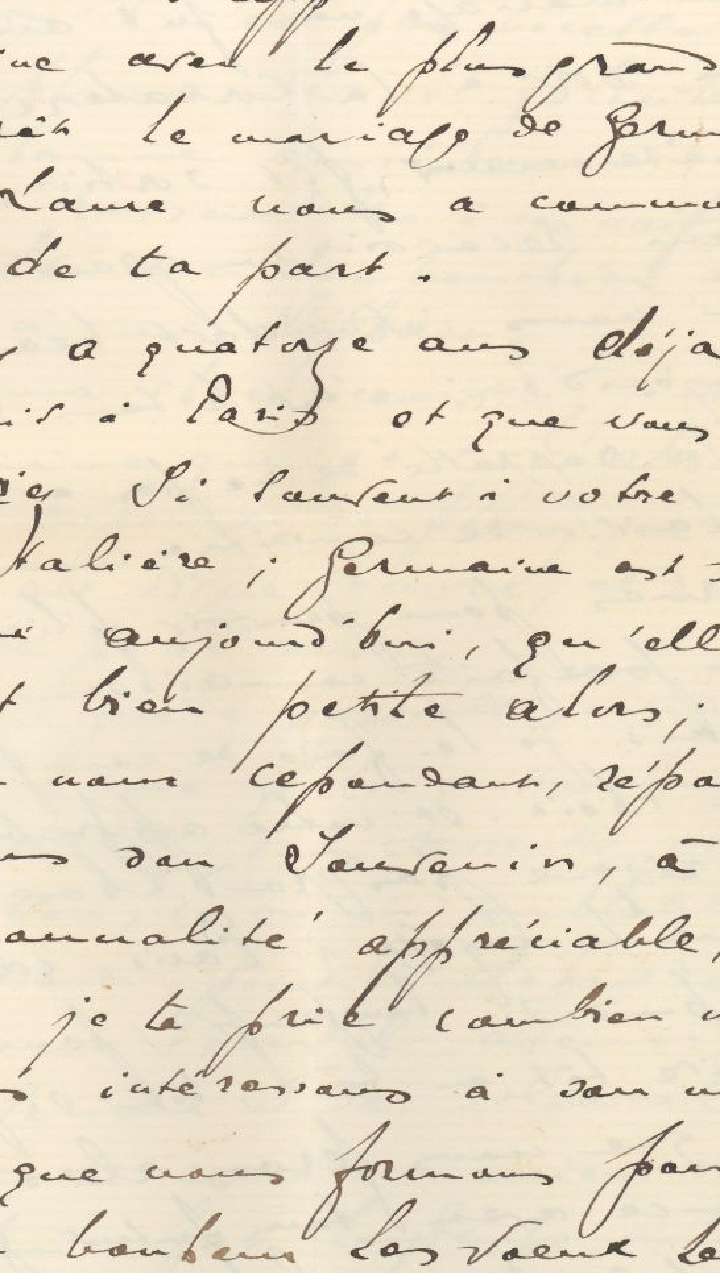 avec le plus grand
le mariage de Germ
Laure nous a commu
de ta part.
y a quatorze ans déjà
à Paris et que vous
si souvent à votre
talière ; Germaine est
aujourd'hui, qu'elle
bien petite alors ;
nous cependant, répo
son souvenir, à
onnalité appréciable,
je te prie combien n
s intéressons à son
que nous formons pour
bonheur les vœux le